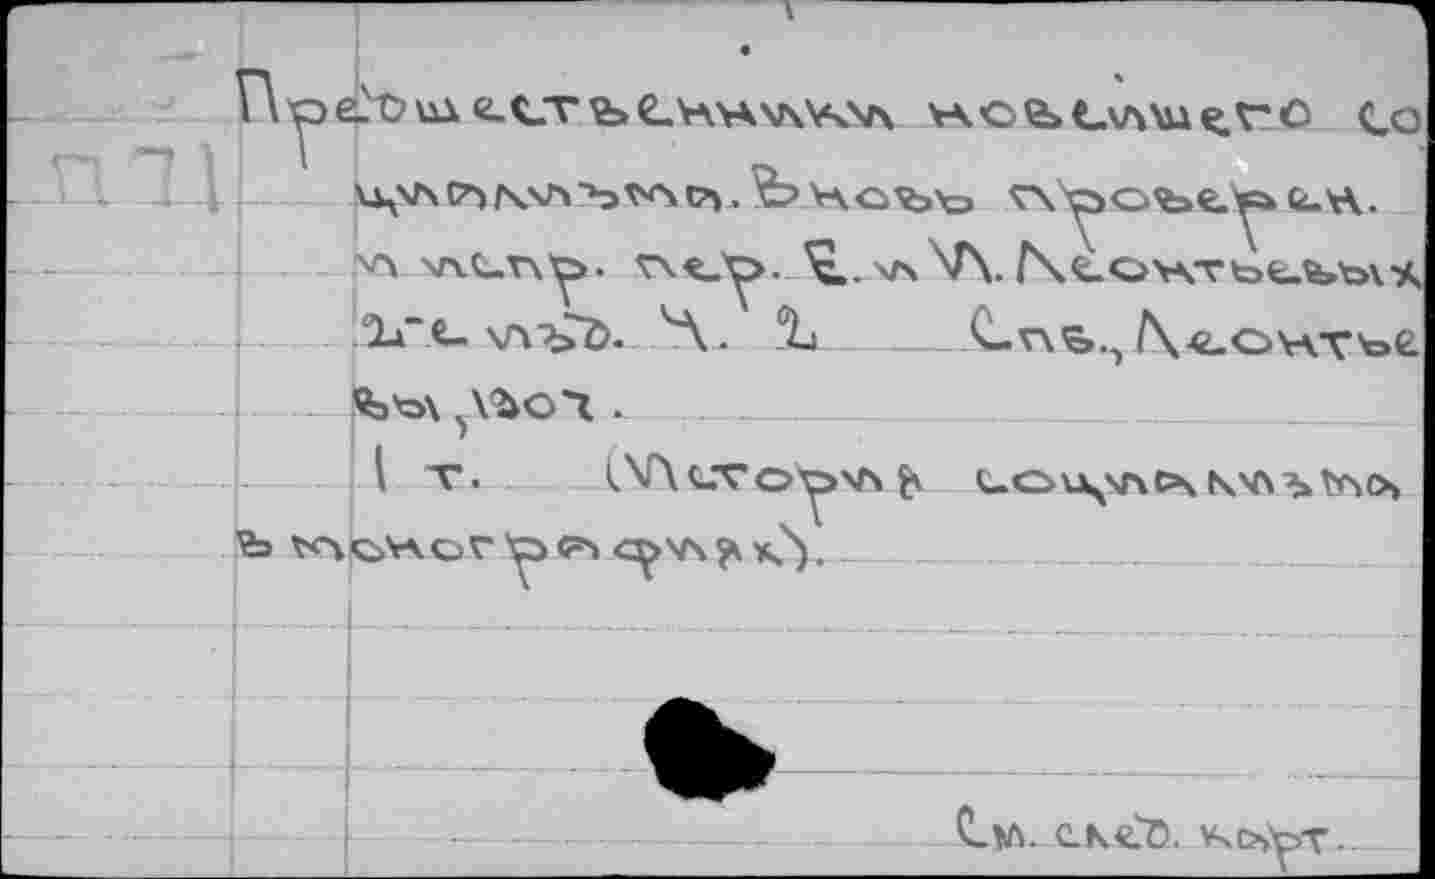 Предшественники новейшего со
п 71
циализма. Вновь проверен.
и испр. пер. Е. и И. Леонтьевых
2-е изд. Ч. 2 Спб., Леонтье
вы, 1907.
1 т. (История социализма
в монографиях).
См. след. карт.